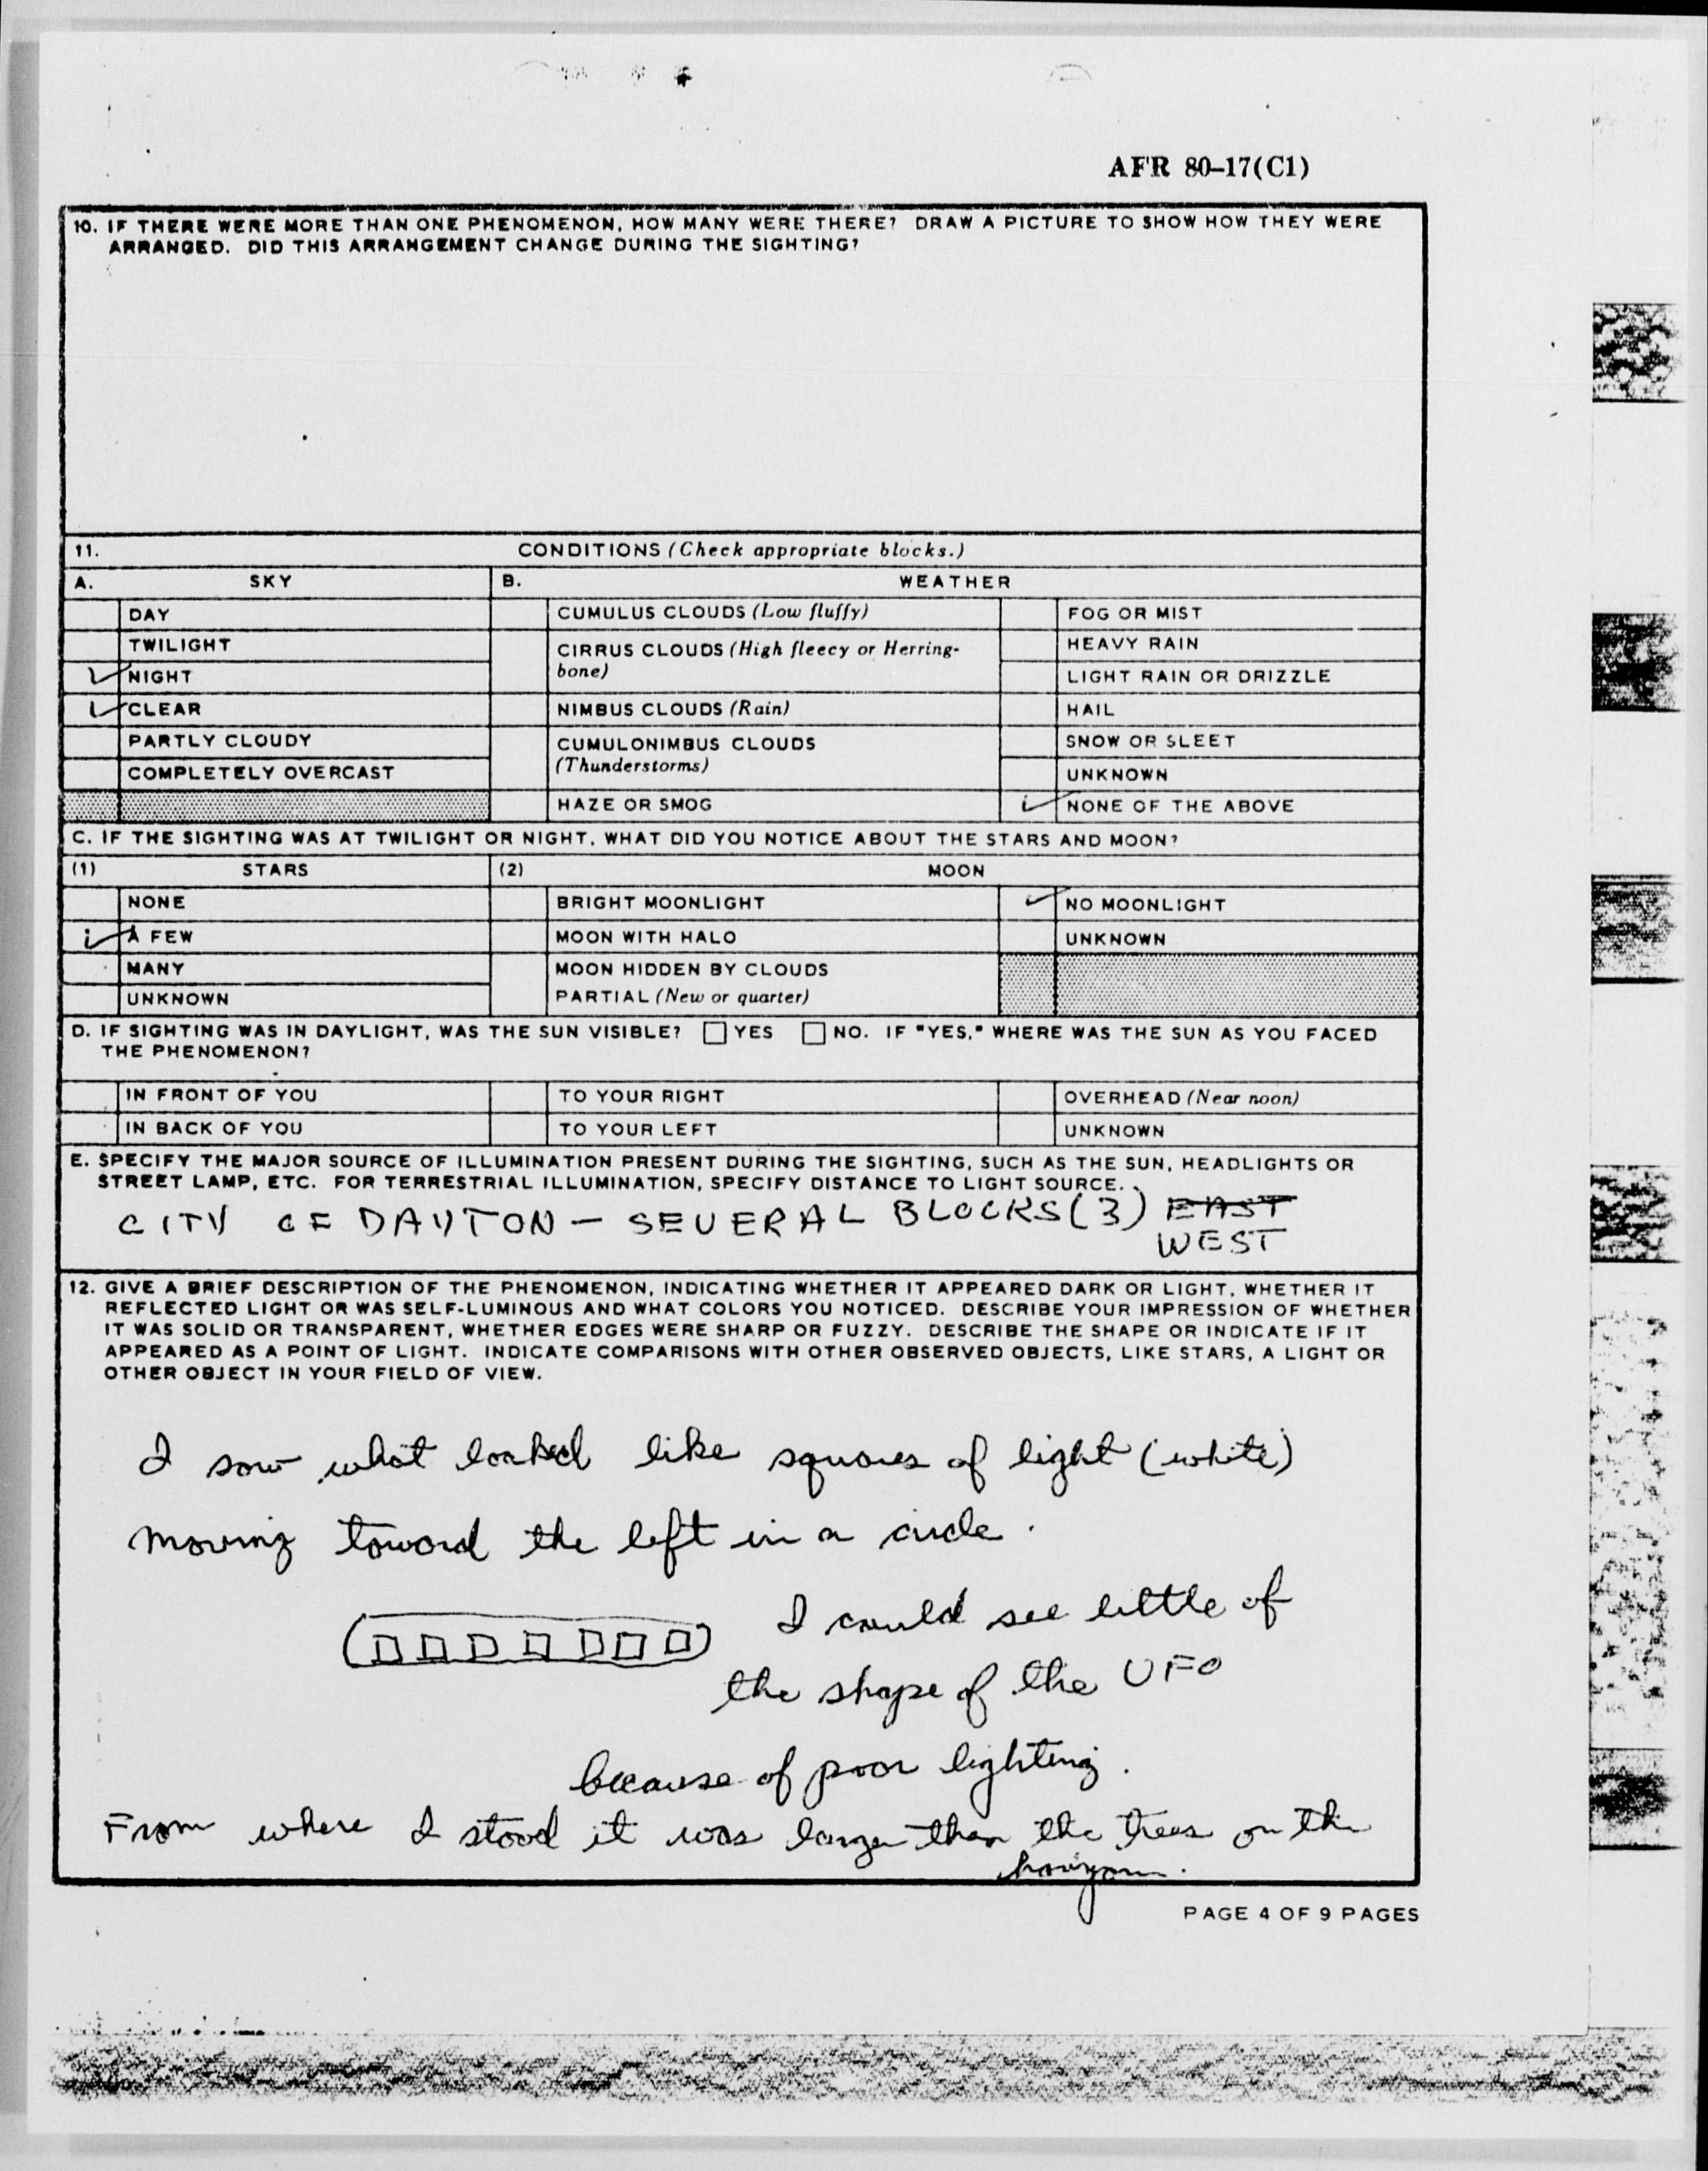 AFR 80-17(C1)
10. IF THERE WERE MORE THAN ONE PHENOMENON, HOW MANY WERE THERE? DRAW A PICTURE TO SHOW HOW THEY WERE
ARRANGED. DID THIS ARRANGEMENT CHANGE DURING THE SIGHTING?
11. CONDITIONS (Check appropriate blocks.)
A. SKY B. WEATHER
DAY CUMULUS CLOUDS (Low fluffy) FOG OR MIST
TWILIGHT CIRRUS CLOUDS (High fleecy or Herring- HEAVY RAIN
NIGHT bone) LIGHT RAIN OR DRIZZLE
CLEAR NIMBUS CLOUDS (Rain) HAIL
PARTLY CLOUDY CUMULONIMBUS CLOUDS SNOW OR SLEET
COMPLETELY OVERCAST (Thunderstorms) UNKNOWN
HAZE OR SMOG NONE OF THE ABOVE
C. IF THE SIGHTING WAS AT TWILIGHT OR NIGHT, WHAT DID YOU NOTICE ABOUT THE STARS AND MOON?
(1) STARS (2) MOON
NONE BRIGHT MOONLIGHT NO MOONLIGHT
A FEW MOON WITH HALO UNKNOWN
MANY MOON HIDDEN BY CLOUDS
UNKNOWN PARTIAL (New or quarter)
D. IF SIGHTING WAS IN DAYLIGHT, WAS THE SUN VISIBLE? YES NO. IF "YES," WHERE WAS THE SUN AS YOU FACED
THE PHENOMENON?
IN FRONT OF YOU TO YOUR RIGHT OVERHEAD (Near noon)
IN BACK OF YOU TO YOUR LEFT UNKNOWN
E. SPECIFY THE MAJOR SOURCE OF ILLUMINATION PRESENT DURING THE SIGHTING, SUCH AS THE SUN, HEADLIGHTS OR
STREET LAMP, ETC. FOR TERRESTRIAL ILLUMINATION, SPECIFY DISTANCE TO LIGHT SOURCE.
CITY OF DAYTON - SEVERAL BLOCKS (3) EAST
WEST
12. GIVE A BRIEF DESCRIPTION OF THE PHENOMENON, INDICATING WHETHER IT APPEARED DARK OR LIGHT, WHETHER IT
REFLECTED LIGHT OR WAS SELF-LUMINOUS AND WHAT COLORS YOU NOTICED. DESCRIBE YOUR IMPRESSION OF WHETHER
IT WAS SOLID OR TRANSPARENT, WHETHER EDGES WERE SHARP OR FUZZY. DESCRIBE THE SHAPE OR INDICATE IF IT
APPEARED AS A POINT OF LIGHT. INDICATE COMPARISONS WITH OTHER OBSERVED OBJECTS, LIKE STARS, A LIGHT OR
OTHER OBJECT IN YOUR FIELD OF VIEW.
I saw what looked like squares of light (white)
moving toward the left in a circle.
I could see little of
the shape of the UFO
because of poor lighting.
From where I stood it was larger than the trees on the
horizon.
PAGE 4 OF 9 PAGES